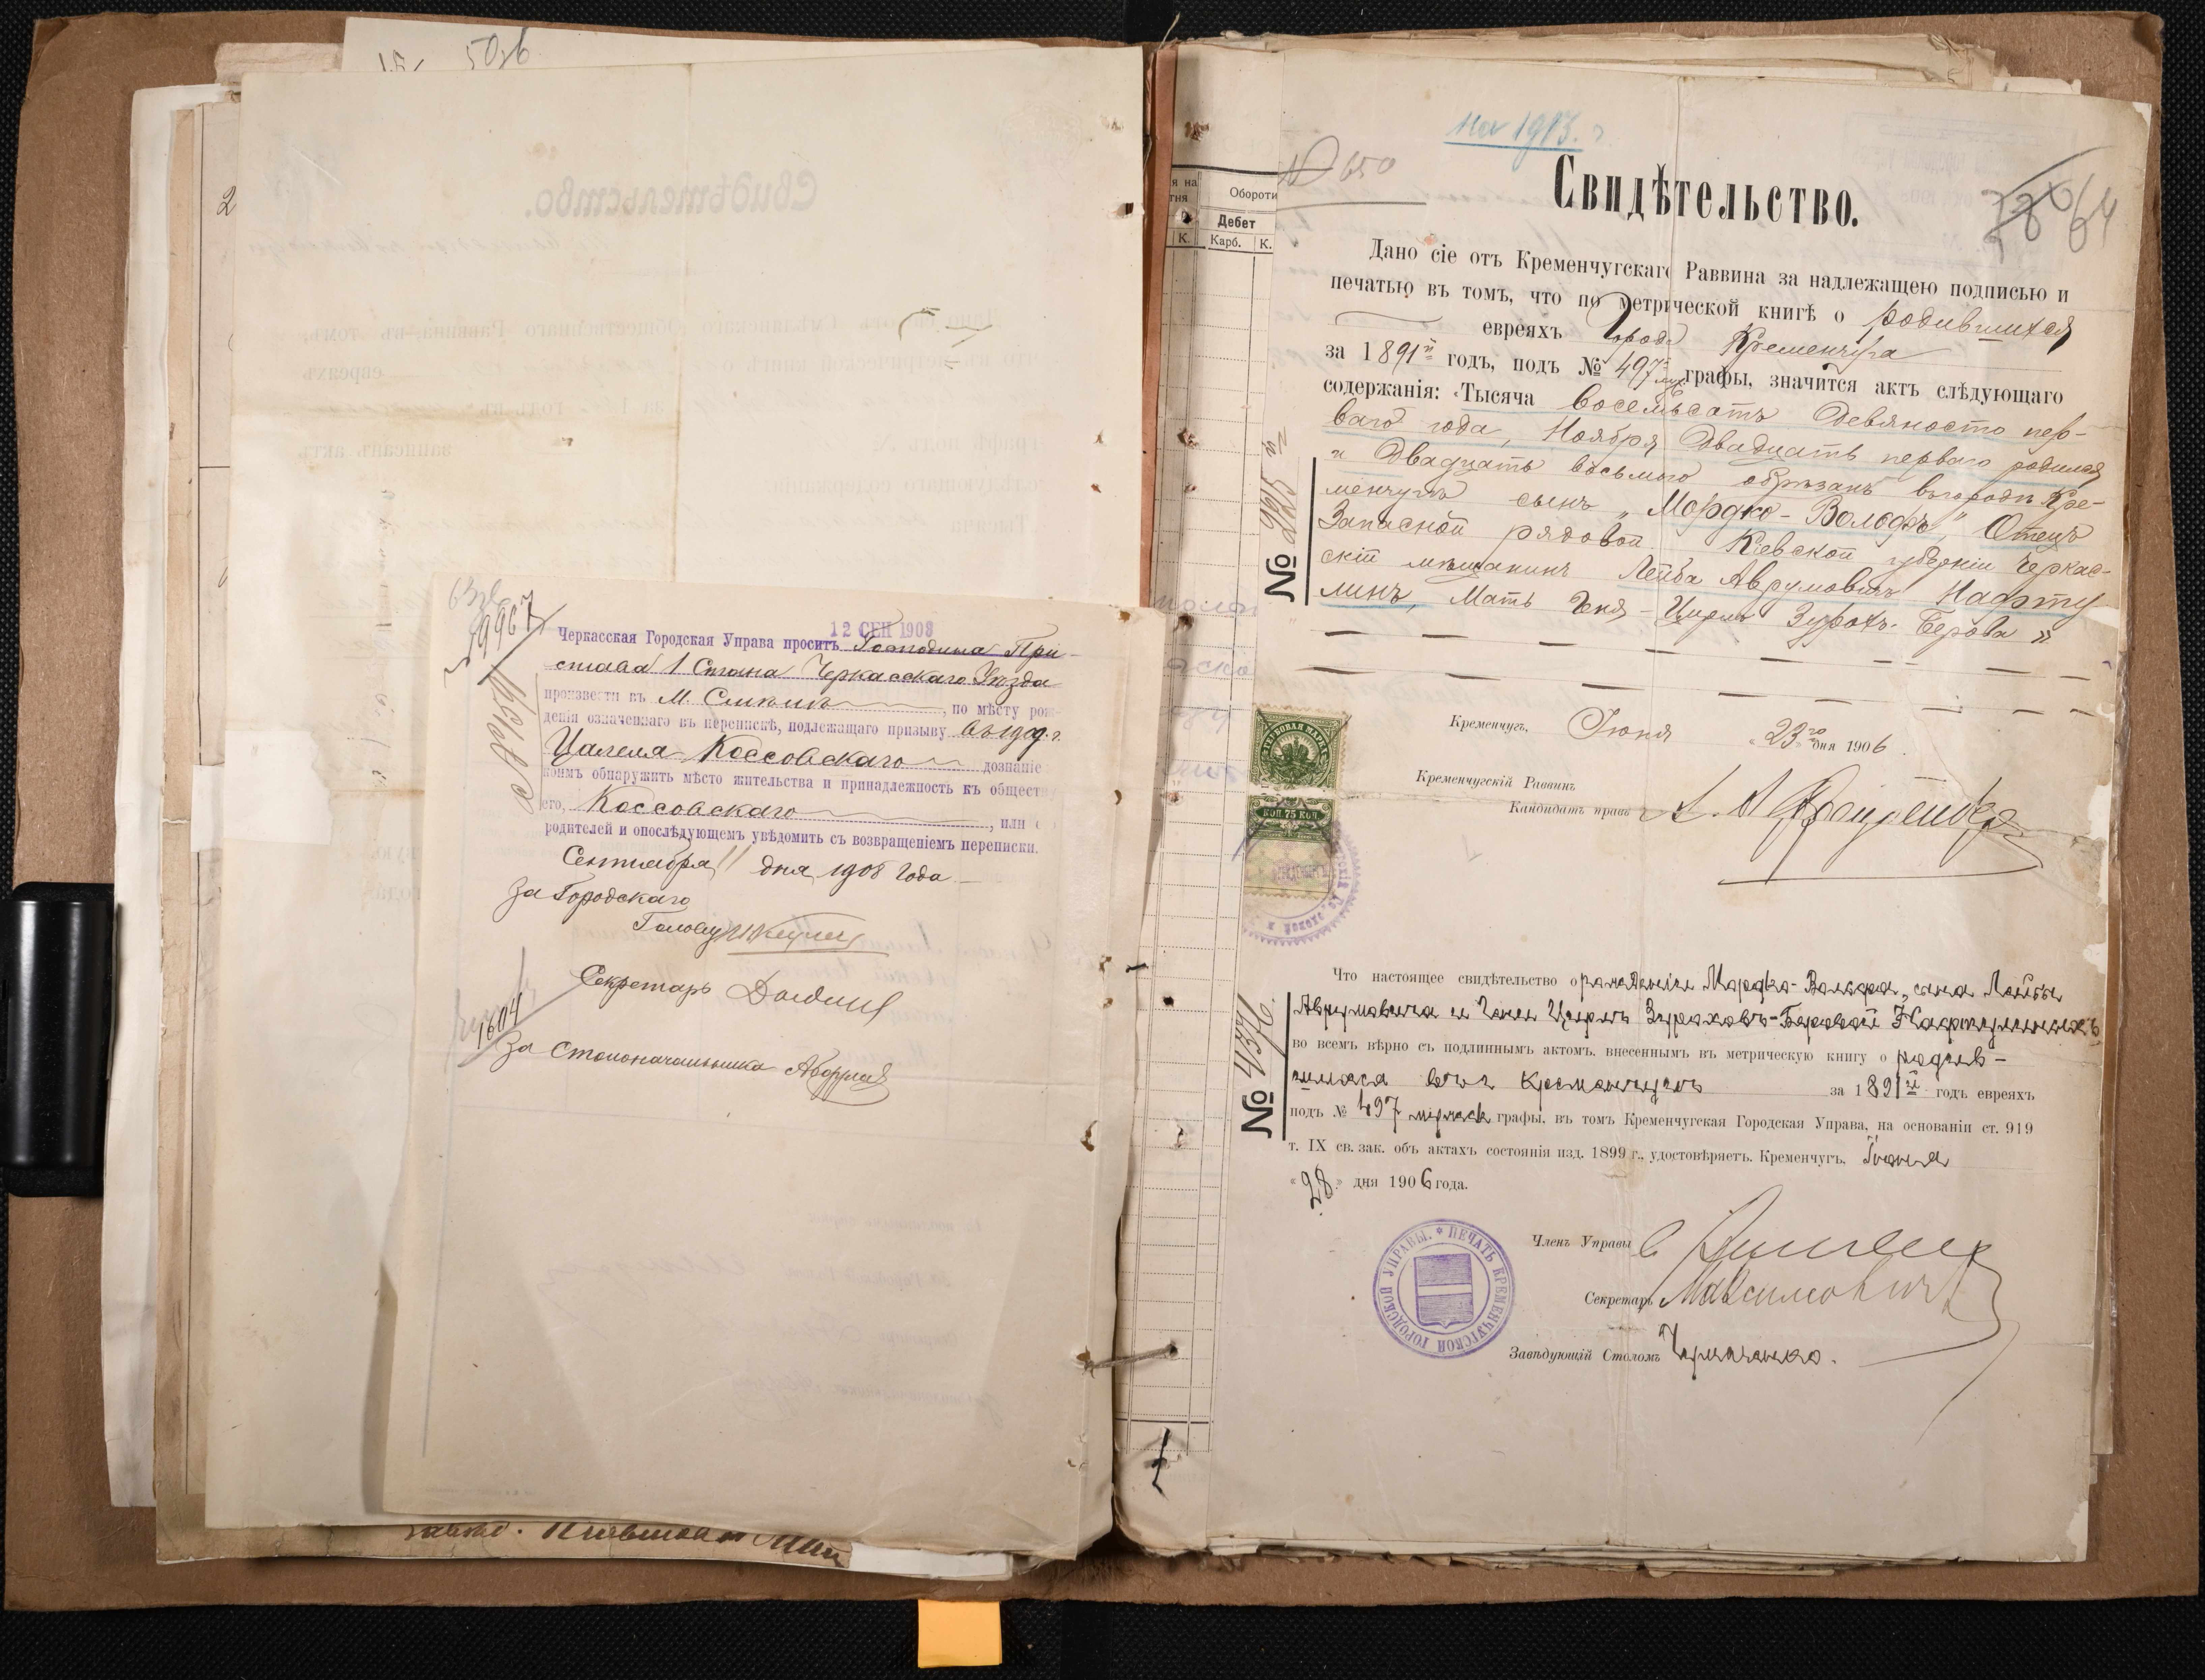 50зв
2
19967
12 СЕН 1908
Черкасская Городская Управа проситъ Господина При-
става 1 Стана Черкасскаго Уѣзда
произвести въ М. , по мѣсту рож-
денія означеннаго въ перепискѣ, подлежащаго призыву въ 1909 г.
Цалеля Коссовскаго дознаніе
коимъ обнаружить мѣсто жительства и принадлежность къ обществу
его, Коссовскаго, или
родителей и опослѣдующемъ увѣдомить съ возвращеніемъ переписки.
Сентября 11 дня 1908 года
За Городскаго
Голову
Секретарь
1604
За Столоначальника
Обороти
Дебет
К. Карб. К.
на 1913 г.
№ 650
64
Свидѣтельство.
Дано сіе отъ Кременчугскаго Раввина за надлежащею подписью и
печатью въ томъ, что по метрической книгѣ о родившихся
евреяхъ Города Кременчуга
за 1891й годъ, подъ № 497 муж графы, значится актъ слѣдующаго
содержанія: „Тысяча восемьсотъ девяносто пер-
ваго года, Ноября двадцать перваго родился
и двадцать восьмого обрѣзанъ въ городѣ Кре-
менчугѣ сынъ „Мордко-Вольфъ", Отецъ
Запасной рядовой Кіевской губерніи Черкас-
скій мѣщанинъ Лейба Аврумовичъ Нафту-
линъ, Мать Геня-Цирль Зурахъ-Берова"
№ 2215
Кременчугъ, Іюня „23го дня 1906
Кременчугскій Раввинъ
Кандидатъ правъ
ГЕРБОВАЯ МАРКА
КОП. 75 КОП.
№ 4376.
Что настоящее свидѣтельство о рожденіи Мордко-Вольфа, сына Лейбы
Аврумовича и Гени Цирль Зураховъ-Беровой Нафтулиныхъ
во всемъ вѣрно съ подлиннымъ актомъ, внесеннымъ въ метрическую книгу о родив-
шихся въ г Кременчугѣ за 1891й годъ евреяхъ
подъ № 497 мужск графы, въ томъ Кременчугская Городская Управа, на основаніи ст. 919
т. IX св. зак. объ актахъ состоянія изд. 1899 г., удостовѣряетъ. Кременчугъ, Іюня
«28» дня 1906 года.
Членъ Управы
Секретарь Максимовичъ
Завѣдующій Столомъ
ПЕЧАТЬ КРЕМЕНЧУГСКОЙ ГОРОДСКОЙ УПРАВЫ.